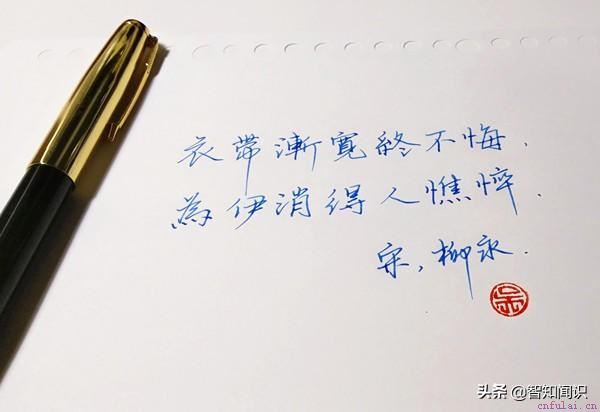 衣帶漸寬終不悔.
為伊消得人憔悴.
宋，柳永.
头条 @智知闻识
cnfulai.cn